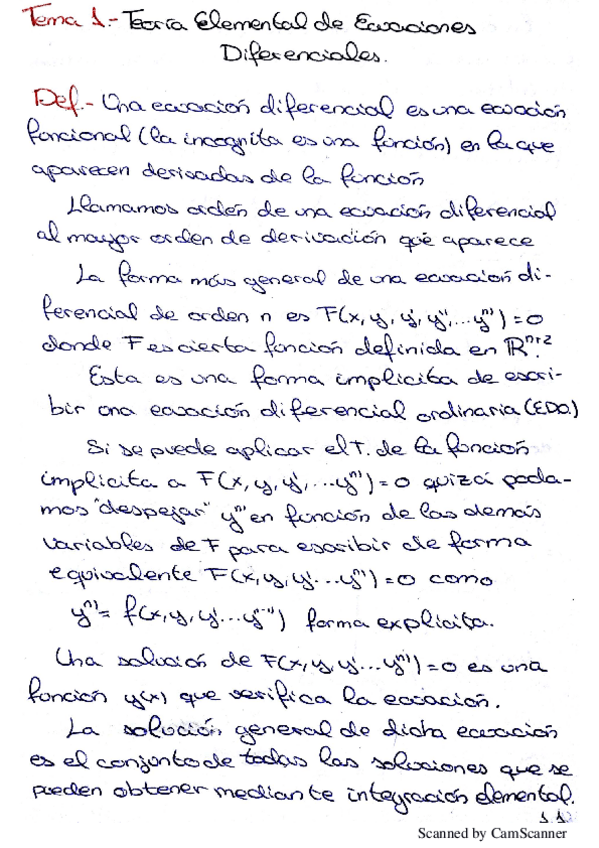 Tema 1.- Teoría Elemental de Ecuaciones
Diferenciales.
Def.- Una ecuación diferencial es una ecuación
funcional (la incognita es una función) en la que
aparecen derivadas de la función
Llamamos orden de una ecuación diferencial
al mayor orden de derivación que aparece
La forma más general de una ecuación di-
ferencial de orden n es F(x, y, y', y'', ... yⁿ⁾) = 0
donde F es cierta función definida en ℝⁿ⁺².
Esta es una forma implicita de escri-
bir una ecuación diferencial ordinaria (EDO.)
Si se puede aplicar el T. de la función
implicita a F(x, y, y', ... yⁿ⁾) = 0 quizá poda-
mos "despejar" yⁿ⁾ en función de las demás
variables de F para escribir de forma
equivalente F(x, y, y' ... yⁿ⁾) = 0 como
yⁿ⁾ = f(x, y, y' ... yⁿ⁻¹⁾) forma explicita.
Una solución de F(x, y, y' ... yⁿ⁾) = 0 es una
función y(x) que verifica la ecuación.
La solución general de dicha ecuación
es el conjunto de todas las soluciones que se
pueden obtener mediante integración elemental.
1.1
Scanned by CamScanner